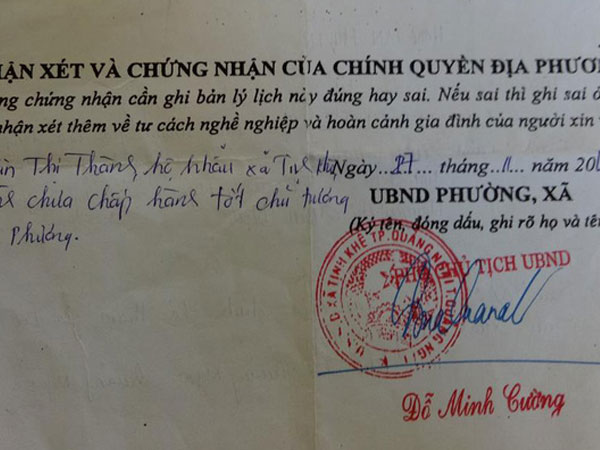 HẬN XÉT VÀ CHỨNG NHẬN CỦA CHÍNH QUYỀN ĐỊA PHƯƠ
ng chứng nhận cần ghi bản lý lịch này đúng hay sai. Nếu sai thì ghi sai ở
nhận xét thêm về tư cách nghề nghiệp và hoàn cảnh gia đình của người xin v
Thị Thành hộ khẩu xã Tịnh Ngày ..27... tháng ..11... năm 20
chưa chấp hành tốt chủ trương
phương.
UBND PHƯỜNG, XÃ
(Ký tên, đóng dấu, ghi rõ họ và tê
PHÓ CHỦ TỊCH UBND
U.B.N.D XÃ TỊNH KHÊ TP.QUẢNG NGÃI T.QUẢNG NGÃI
Đỗ Minh Cường